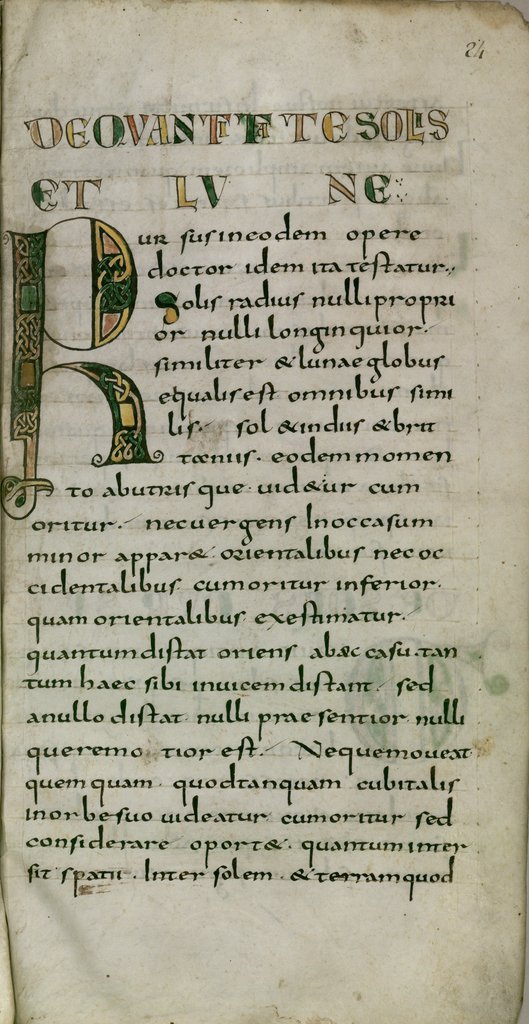 24
DEQVANTITATE SOLIS
ET LVNE:
Rur sus ineodem opere
doctor idem ita testatur.,
Solis radius nulli propri
or nulli longin quior.
similiter & lunae globus
equalis est omnibus simi
lis. sol & indiis & brit
taniis. eodem momen
to ab utrisque uid&ur cum
oritur. nec uergens In occasum
minor appar& orientalibus nec oc
cidentalibus cum oritur inferior.
quam orientalibus exestimatur.
quantum distat oriens aboccasu. tan
tum haec sibi inuicem distant. sed
anullo distat nulli prae sentior nulli
queremo tior est. Nequemoueat
quem quam. quodtanquam cubitalis
inorbe suo uideatur cumoritur sed
considerare oport&. quantum inter
sit spatii. Inter solem. & terram quod